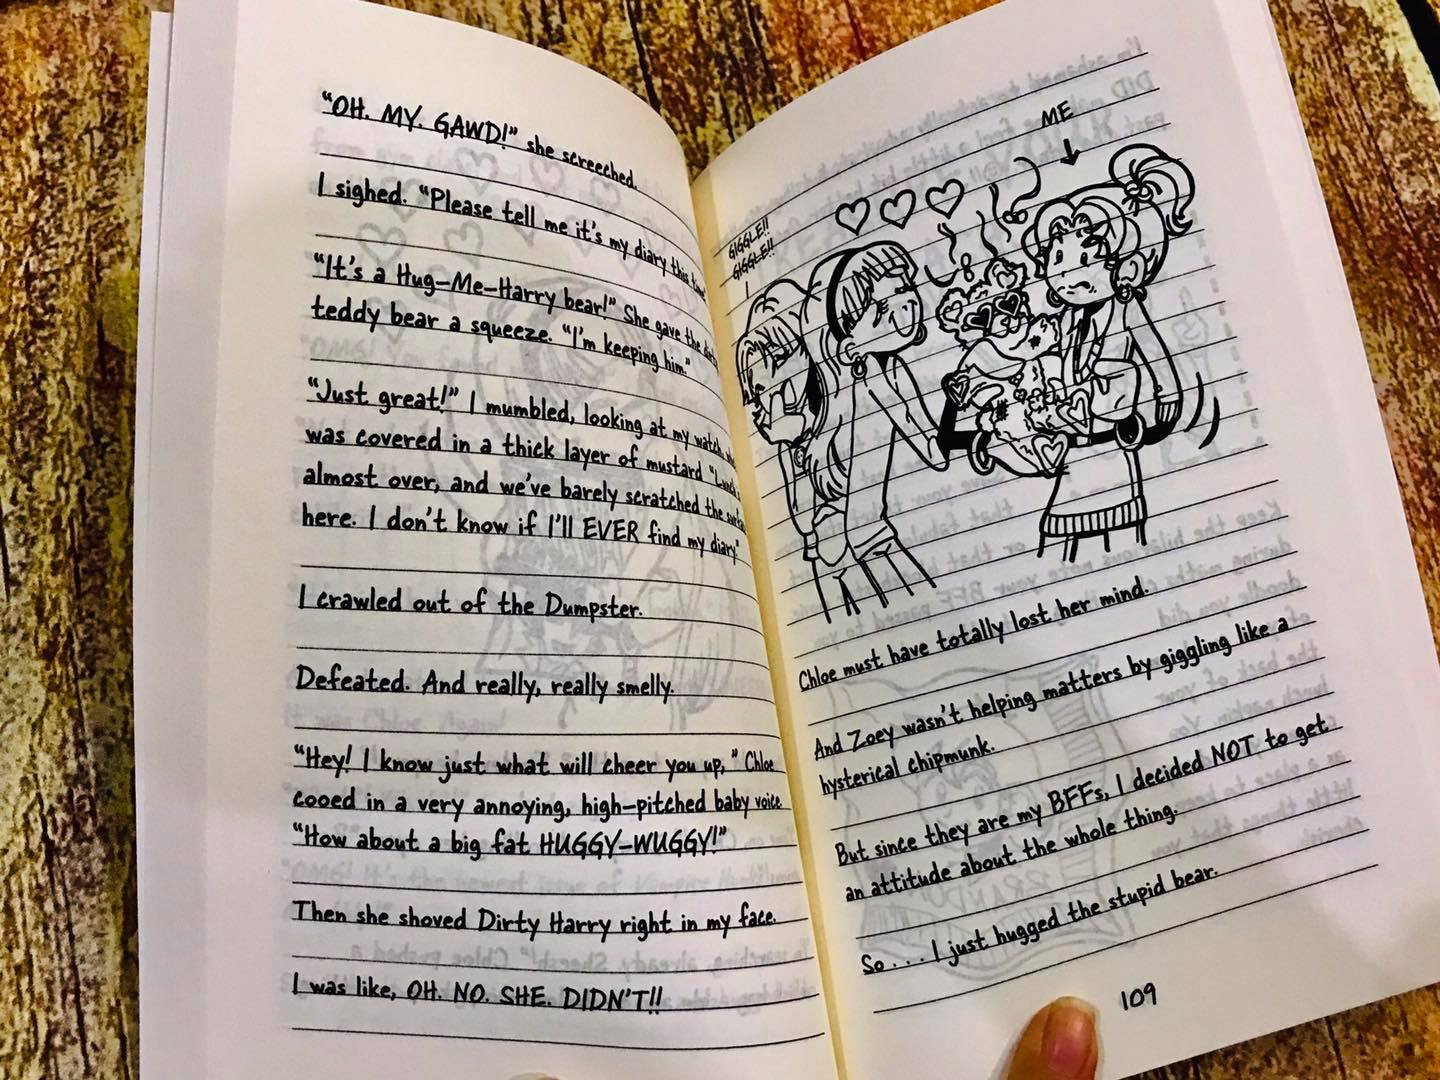 "OH. MY. GAWD!" she screeched.
I sighed. "Please tell me it's my diary this time."
"It's a Hug-Me-Harry bear!" She gave the dirty
teddy bear a squeeze. "I'm keeping him."
"Just great!" I mumbled, looking at my watch, 
was covered in a thick layer of mustard "Lunch
almost over, and we've barely scratched the surface
here. I don't know if I'll EVER find my diary"
I crawled out of the Dumpster.
Defeated. And really, really smelly.
"Hey! I know just what will cheer you up," Chloe
cooed in a very annoying, high-pitched baby voice.
"How about a big fat HUGGY-WUGGY!"
Then she shoved Dirty Harry right in my face.
I was like, OH. NO. SHE. DIDN'T!!
ME
GIGGLE!!
GIGGLE!!
Chloe must have totally lost her mind.
And Zoey wasn't helping matters by giggling like a
hysterical chipmunk.
But since they are my BFFs, I decided NOT to get
an attitude about the whole thing.
So . . . I just hugged the stupid bear.
109